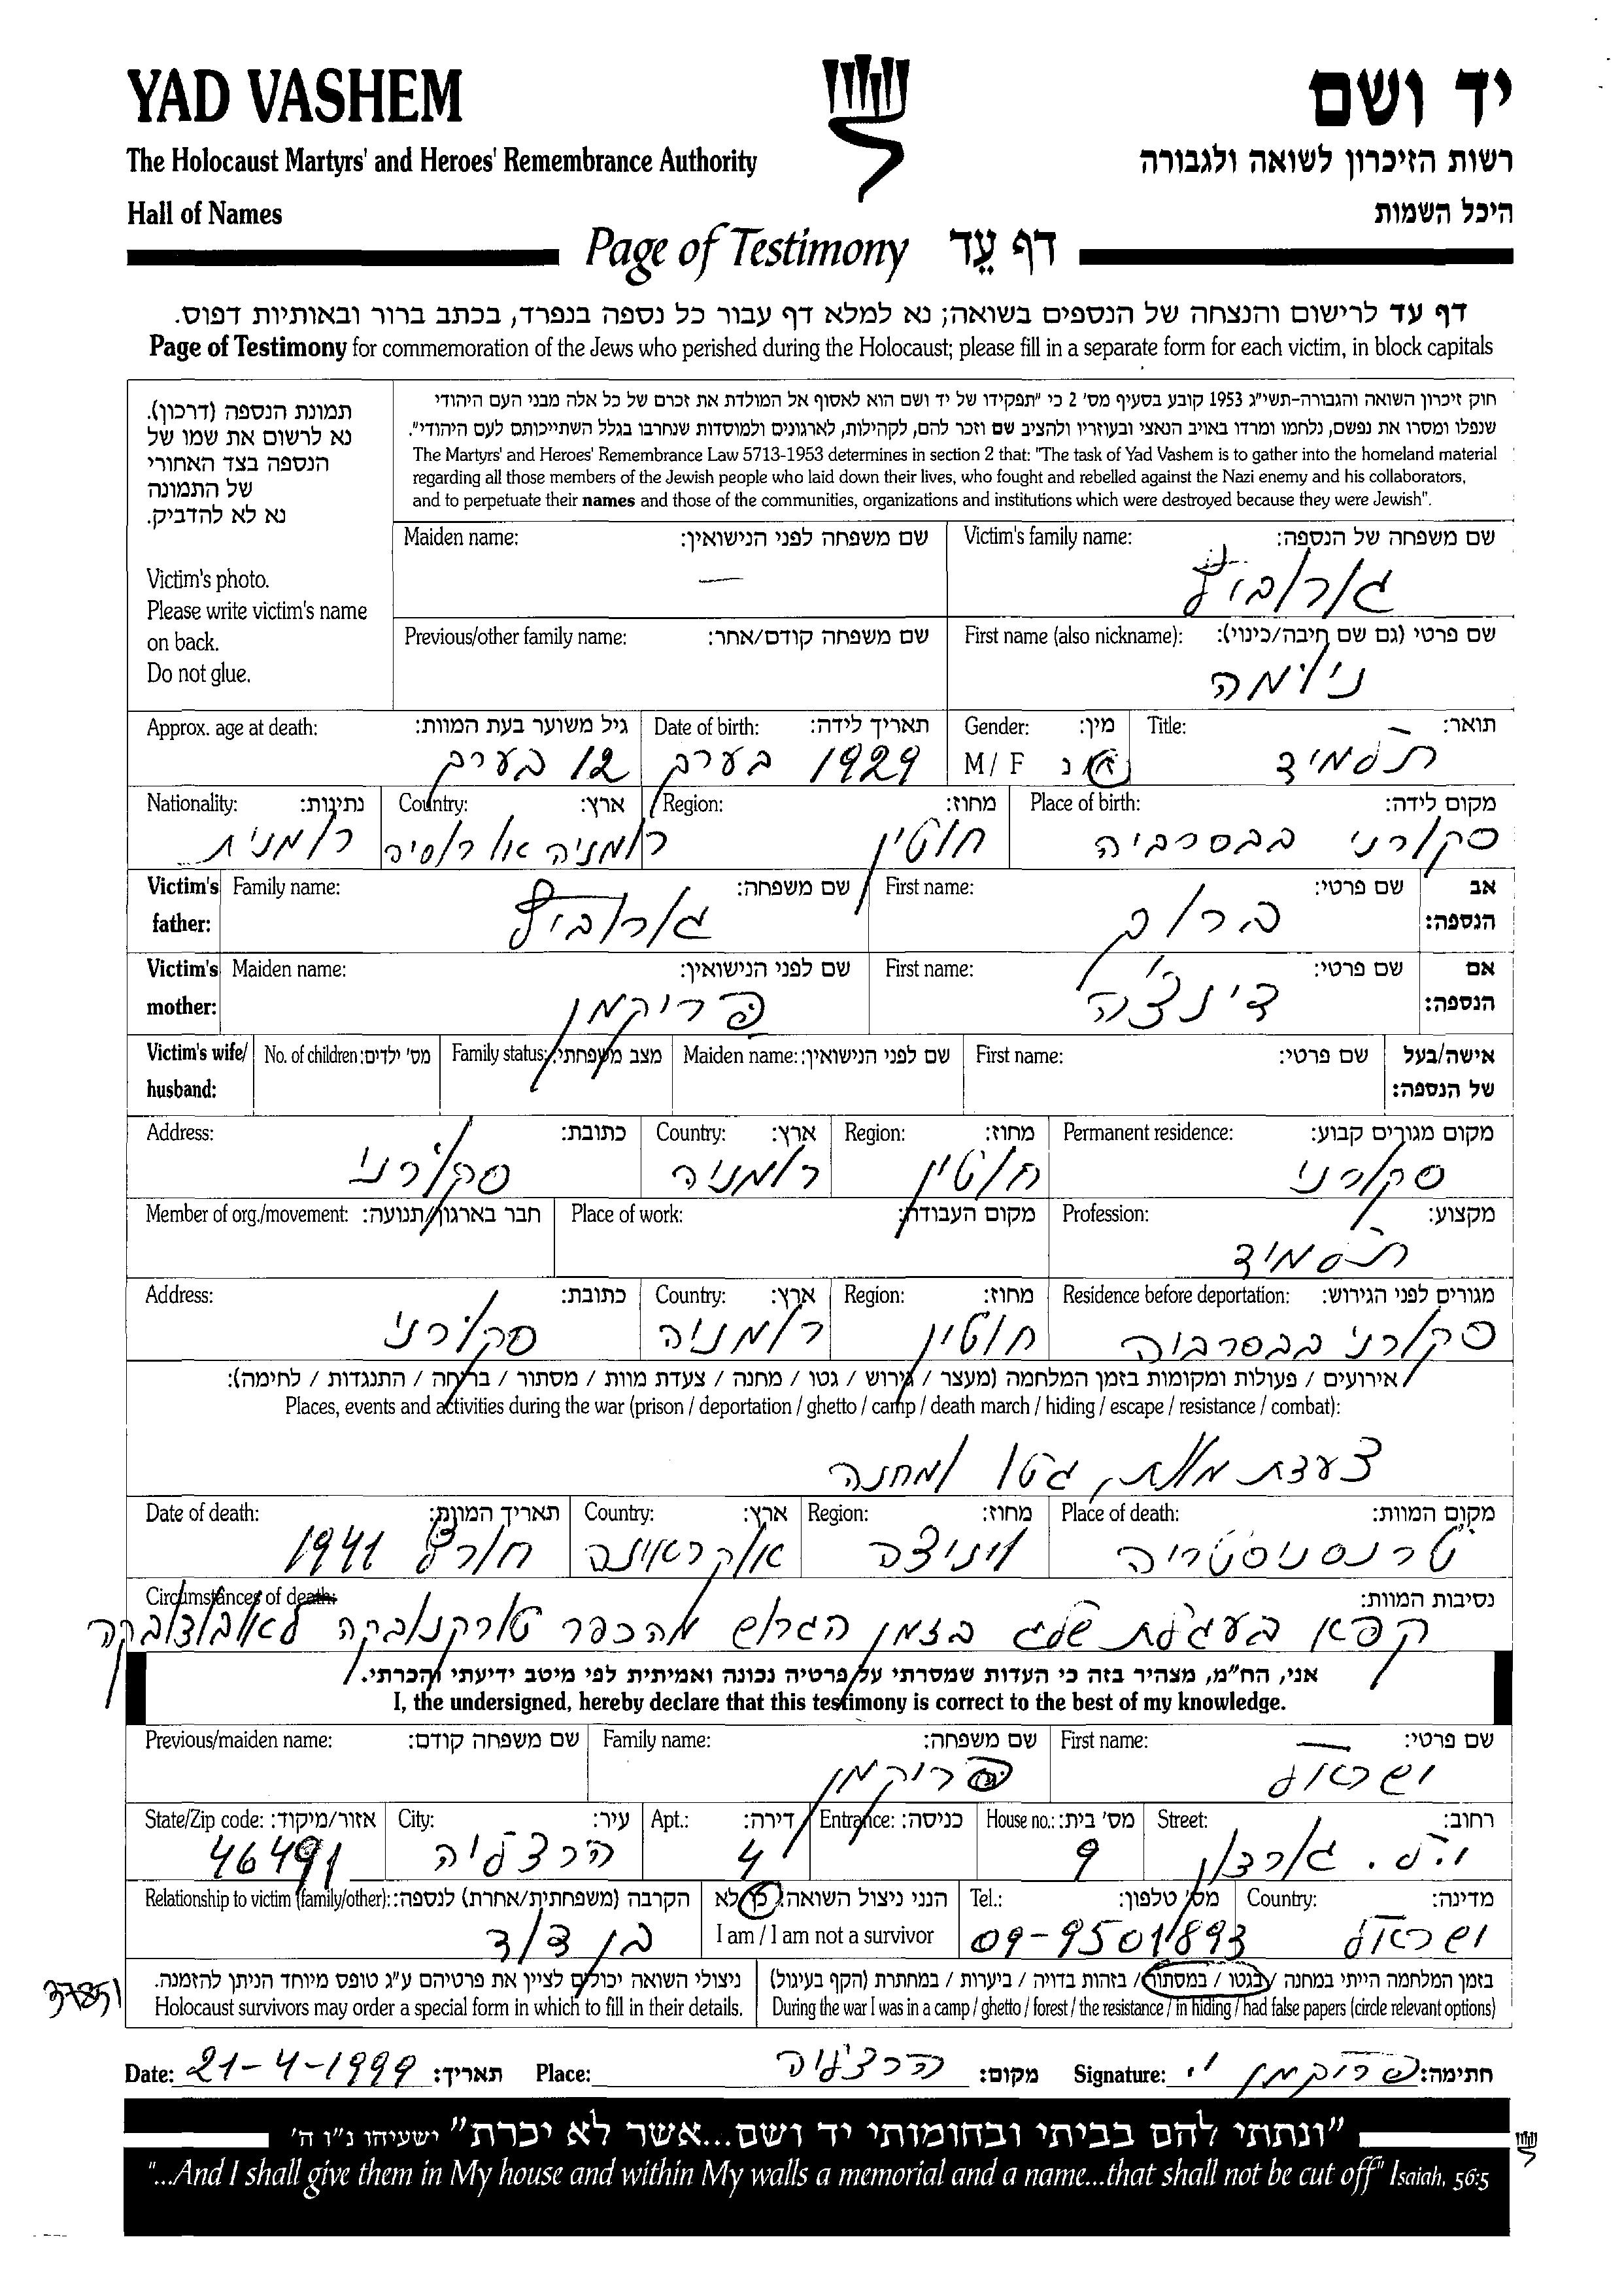 YAD VASHEM
יד ושם
The Holocaust Martyrs' and Heroes' Remembrance Authority
רשות הזיכרון לשואה ולגבורה
Hall of Names
היכל השמות
Page of Testimony דף עֵד
דף עד לרישום והנצחה של הנספים בשואה; נא למלא דף עבור כל נספה בנפרד, בכתב ברור ובאותיות דפוס.
Page of Testimony for commemoration of the Jews who perished during the Holocaust; please fill in a separate form for each victim, in block capitals
תמונת הנספה (דרכון).
נא לרשום את שמו של
הנספה בצד האחורי
של התמונה
נא לא להדביק.
Victim's photo.
Please write victim's name
on back.
Do not glue.
חוק זיכרון השואה והגבורה-תשי"ג 1953 קובע בסעיף מס' 2 כי "תפקידו של יד ושם הוא לאסוף אל המולדת את זכרם של כל אלה מבני העם היהודי
שנפלו ומסרו את נפשם, נלחמו ומרדו באויב הנאצי ובעוזריו ולהציב שם וזכר להם, לקהילות, לארגונים ולמוסדות שנחרבו בגלל השתייכותם לעם היהודי".
The Martyrs' and Heroes' Remembrance Law 5713-1953 determines in section 2 that: "The task of Yad Vashem is to gather into the homeland material
regarding all those members of the Jewish people who laid down their lives, who fought and rebelled against the Nazi enemy and his collaborators,
and to perpetuate their names and those of the communities, organizations and institutions which were destroyed because they were Jewish".
שם משפחה של הנספה: Victim's family name:
שם משפחה לפני הנישואין: Maiden name:
—
שם פרטי (גם שם חיבה/כינוי): First name (also nickname):
שם משפחה קודם/אחר: Previous/other family name:
תואר: Title: מין: Gender: תאריך לידה: Date of birth: גיל משוער בעת המוות: Approx. age at death:
תלמיד ז נ M / F 1929 בערך 12 בערך
מקום לידה: Place of birth: מחוז: Region: ארץ: Country: נתינות: Nationality:
סקורני בבסרביה חוטין רומניה או רוסיה רומנית
אב הנספה: שם פרטי: First name: שם משפחה: Family name: Victim's father:
ברוך
אם הנספה: שם פרטי: First name: שם לפני הנישואין: Maiden name: Victim's mother:
פריקמן
אישה/בעל של הנספה: שם פרטי: First name: שם לפני הנישואין: Maiden name: מצב משפחתי: Family status: מס' ילדים: No. of children: Victim's wife/ husband:
מקום מגורים קבוע: Permanent residence: מחוז: Region: ארץ: Country: כתובת: Address:
סקורני חוטין רומניה סקורני
מקצוע: Profession: מקום העבודה: Place of work: חבר בארגון/תנועה: Member of org./movement:
תלמיד
מגורים לפני הגירוש: Residence before deportation: מחוז: Region: ארץ: Country: כתובת: Address:
סקורני בבסרביה חוטין רומניה סקורני
אירועים / פעולות ומקומות בזמן המלחמה (מעצר / גירוש / גטו / מחנה / צעדת מוות / מסתור / בריחה / התנגדות / לחימה):
Places, events and activities during the war (prison / deportation / ghetto / camp / death march / hiding / escape / resistance / combat):
צעדת מוות, גטו ומחנה
מקום המוות: Place of death: מחוז: Region: ארץ: Country: תאריך המוות: Date of death:
טרנסניסטריה ויניצה אוקראינה חורף 1941
נסיבות המוות: Circumstances of death:
קפא בעגלת שלג בזמן הגרוש מהכפר
אני, הח"מ, מצהיר בזה כי העדות שמסרתי על פרטיה נכונה ואמיתית לפי מיטב ידיעתי והכרתי.
I, the undersigned, hereby declare that this testimony is correct to the best of my knowledge.
שם פרטי: First name: שם משפחה: Family name: שם משפחה קודם: Previous/maiden name:
ישראל פריקמן
רחוב: Street: מס' בית: House no.: כניסה: Entrance: דירה: Apt.: עיר: City: אזור/מיקוד: State/Zip code:
י.ל. גורדון 9 4 הרצליה 46491
מדינה: Country: מס' טלפון: Tel.: הנני ניצול השואה: כן לא הקרבה (משפחתית/אחרת) לנספה: Relationship to victim (family/other):
ישראל 09-9501893 I am / I am not a survivor בן דוד
בזמן המלחמה הייתי במחנה / בגטו / במסתור / בזהות בדויה / ביערות / במחתרת (הקף בעיגול)
During the war I was in a camp / ghetto / forest / the resistance / in hiding / had false papers (circle relevant options)
ניצולי השואה יכולים לציין את פרטיהם ע"ג טופס מיוחד הניתן להזמנה.
Holocaust survivors may order a special form in which to fill in their details.
37851
Date: 21-4-1999 תאריך: Place: הרצליה מקום: Signature: פריקמן י' חתימה:
"ונתתי להם בביתי ובחומותי יד ושם...אשר לא יכרת" ישעיהו נ"ו ה'
"...And I shall give them in My house and within My walls a memorial and a name...that shall not be cut off" Isaiah, 56:5